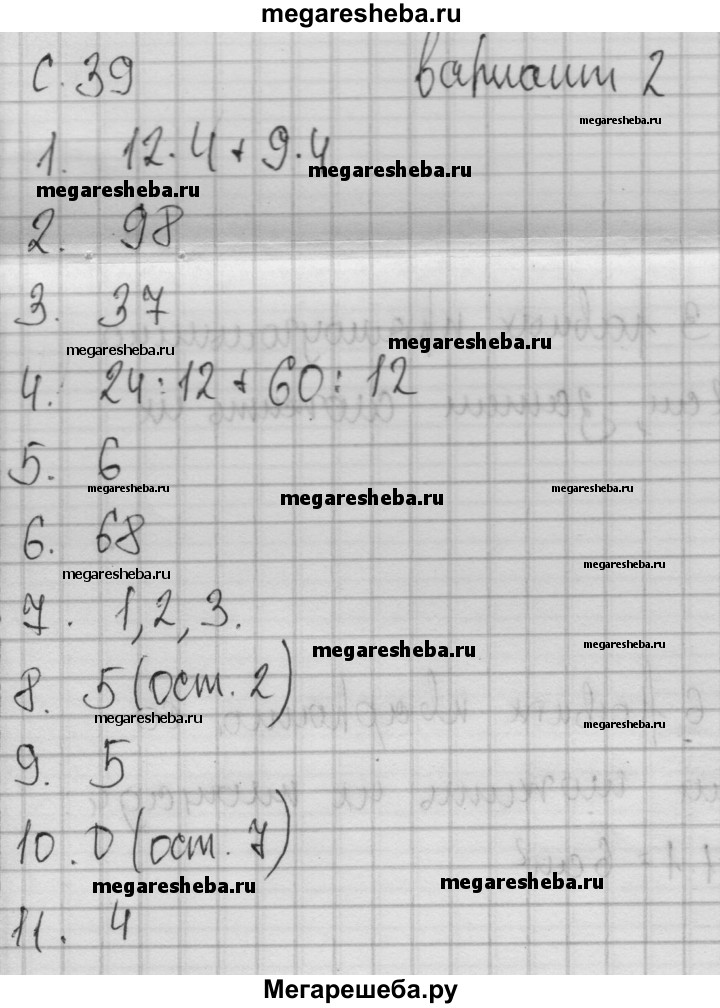 megaresheba.ru
с. 39 вариант 2
megaresheba.ru
1. 12·4+9·4
megaresheba.ru
megaresheba.ru
2. 98
3. 37
megaresheba.ru
megaresheba.ru
4. 24:12+60:12
5. 6
megaresheba.ru
megaresheba.ru
megaresheba.ru
6. 68
megaresheba.ru
megaresheba.ru
7. 1, 2, 3.
megaresheba.ru
megaresheba.ru
8. 5 (ост. 2)
megaresheba.ru
megaresheba.ru
9. 5
10. 0 (ост. 7)
megaresheba.ru
megaresheba.ru
11. 4
Мегарешеба.ру